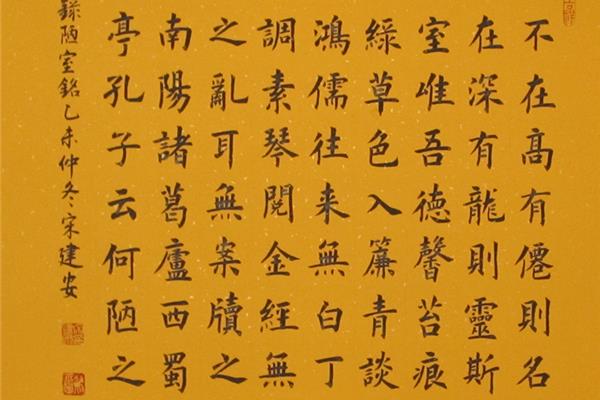 不在髙有僊則名
在深有龍則靈斯
室唯吾德馨苔痕
綠草色入簾青談
鴻儒往来無白丁
調素琴閱金經無
之亂耳無案牘之
南陽諸葛廬西蜀
亭孔子云何陋之
錄陋室銘乙未仲冬宋建安